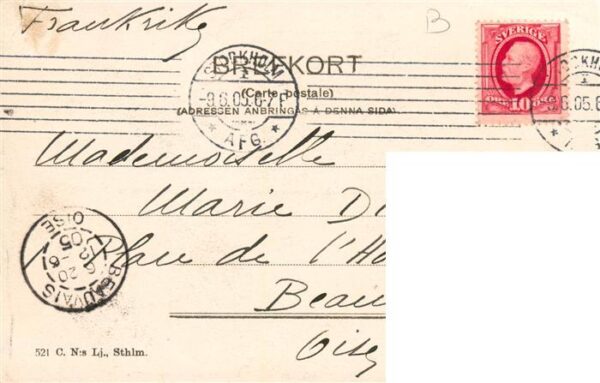 Frankrike
B
SVERIGE
ÖRE 10 ÖRE
BREFKORT
(Carte postale)
(ADRESSEN ANBRINGAS Å DENNA SIDA)
STOCKHOLM
1
9.6.05.6-7 F
* AFG. *
OCKHOL
9.6.05.6
Mademoiselle
Marie D
Place de l'Ho
Beau
Oise
BEAUVAIS
6 20
12 -6
05
OISE
521 C. N:s Lj., Sthlm.